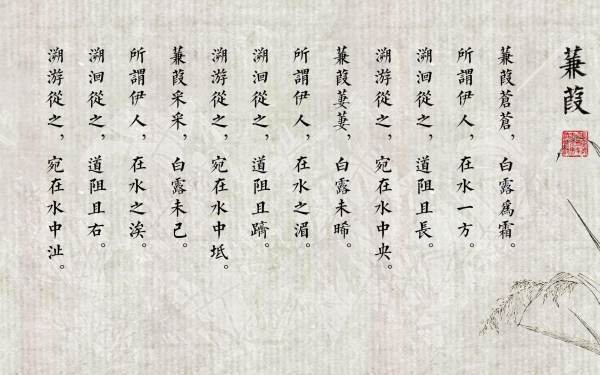 蒹葭
蒹葭蒼蒼，白露爲霜。
所謂伊人，在水一方。
溯洄從之，道阻且長。
溯游從之，宛在水中央。
蒹葭萋萋，白露未晞。
所謂伊人，在水之湄。
溯洄從之，道阻且躋。
溯游從之，宛在水中坻。
蒹葭采采，白露未已。
所謂伊人，在水之涘。
溯洄從之，道阻且右。
溯游從之，宛在水中沚。